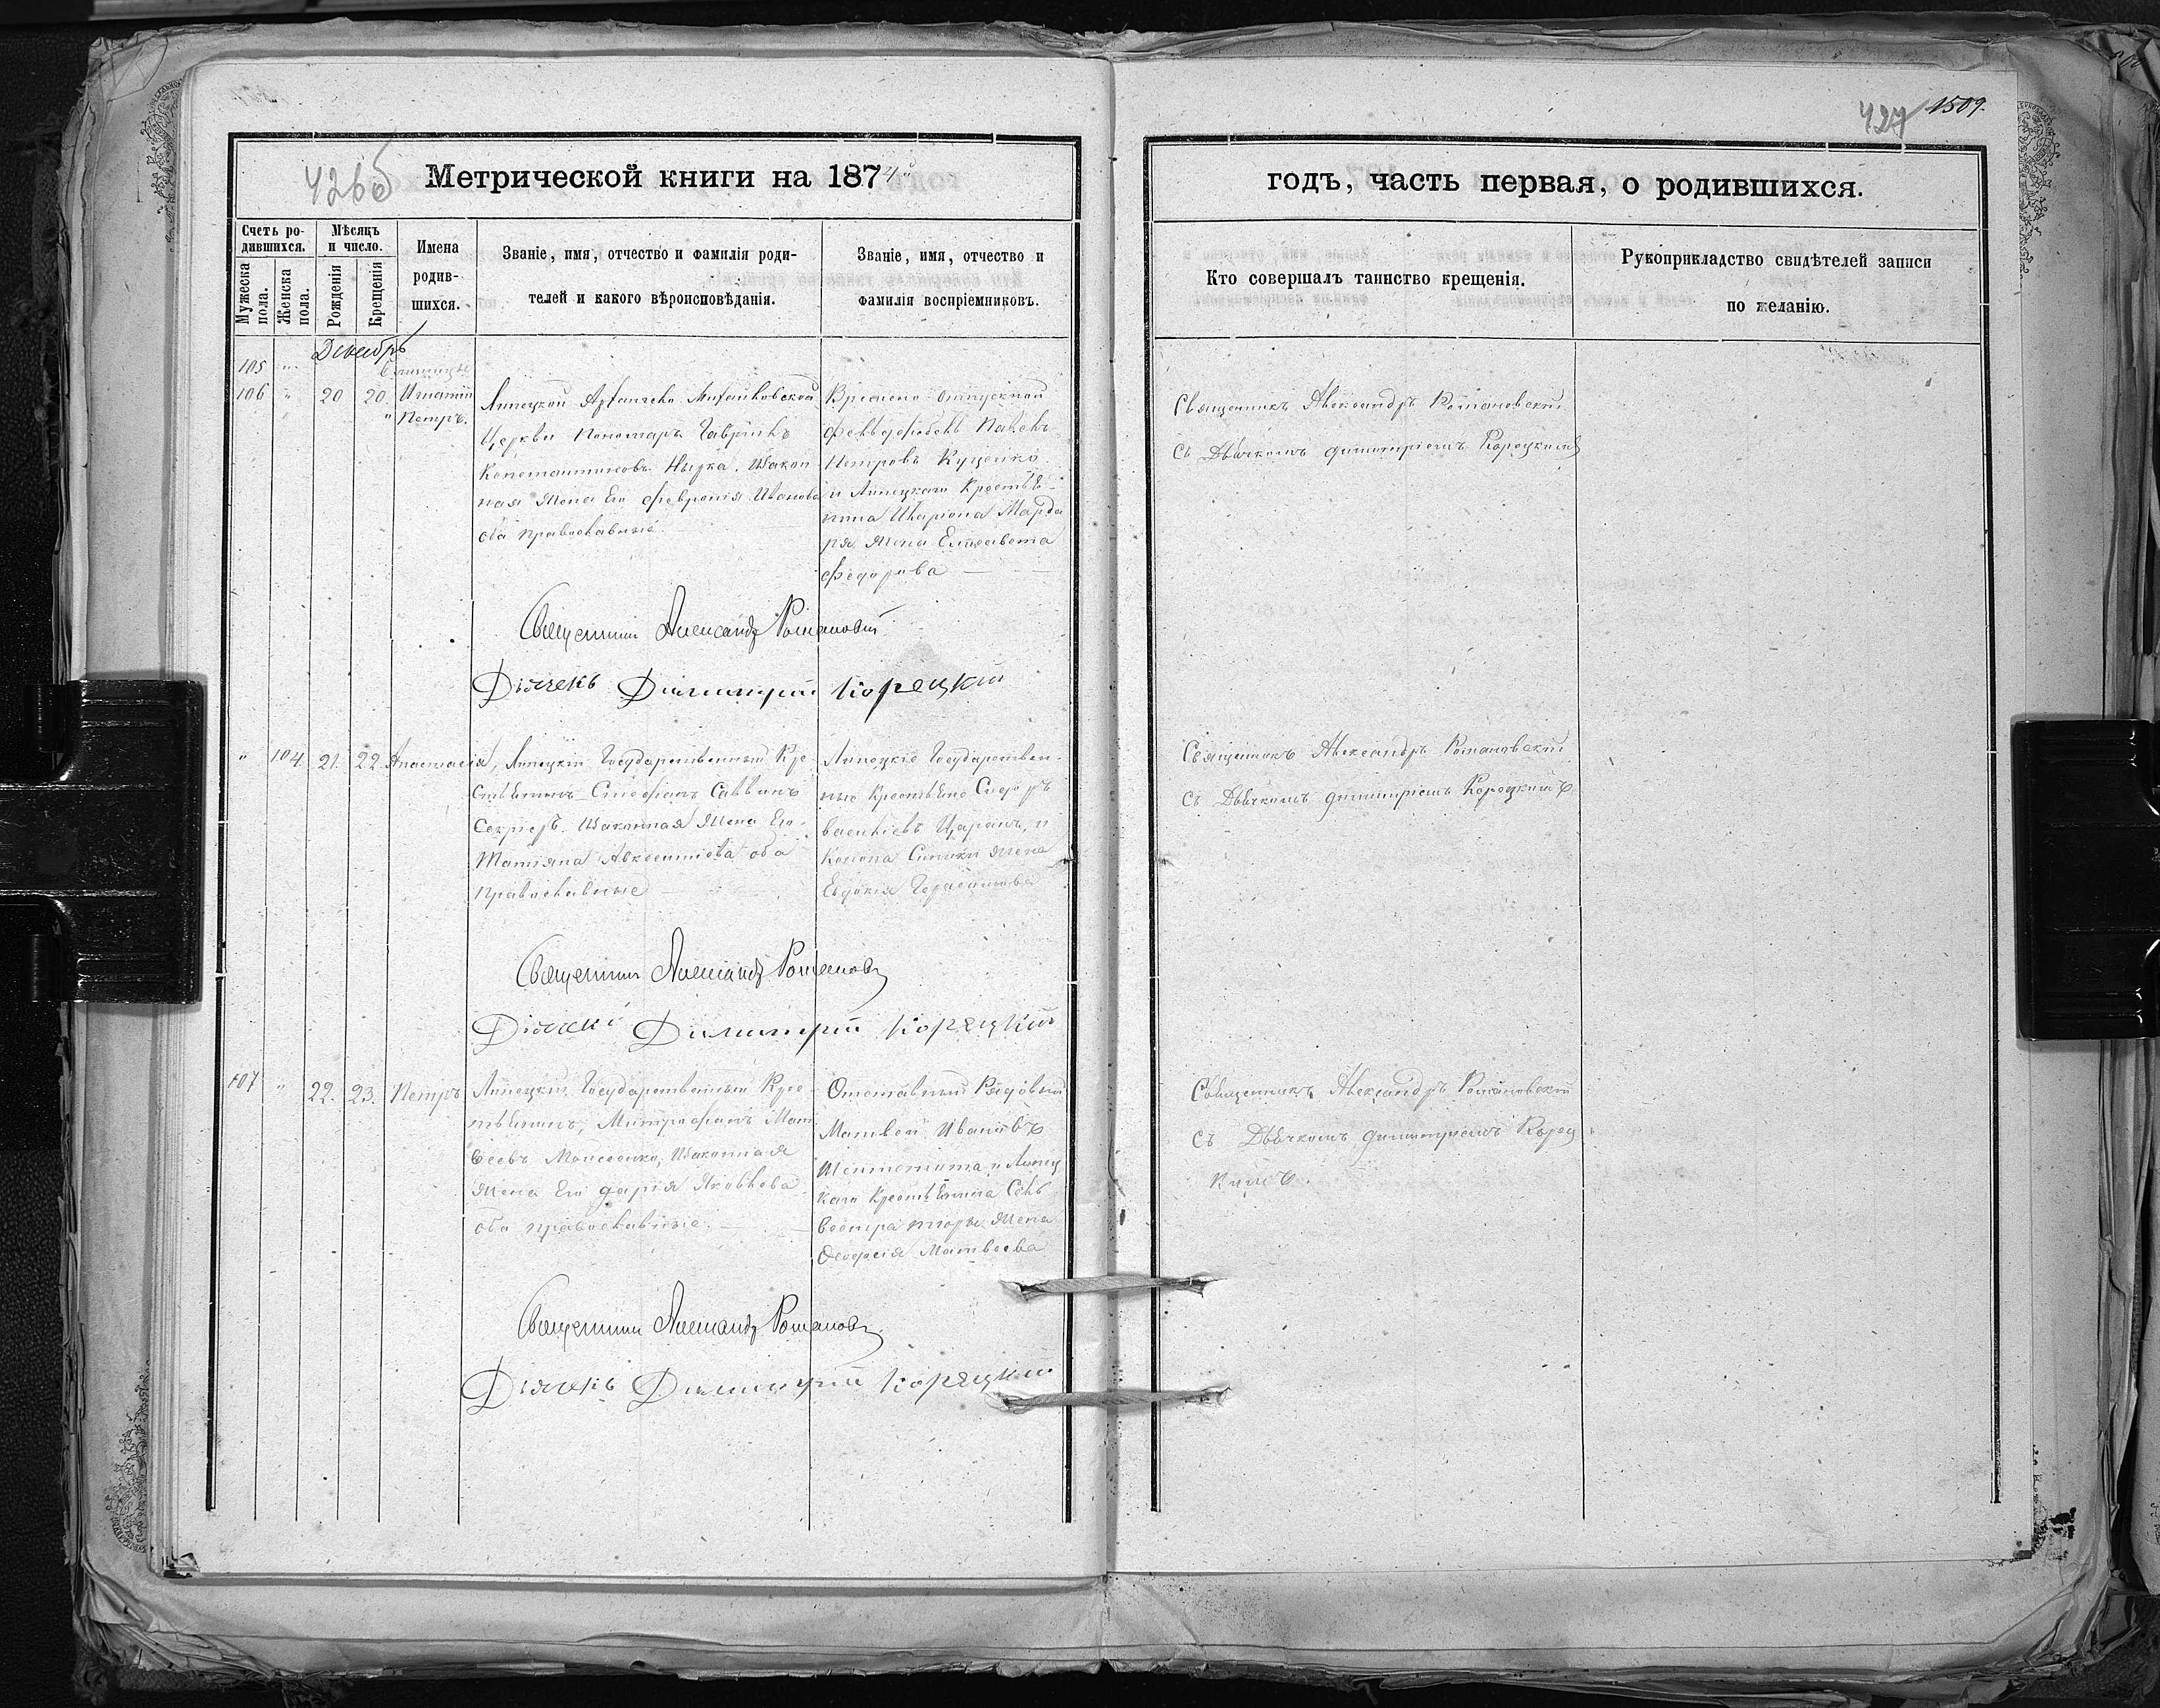 427 1509.
426об
Метрической книги на 1874
годъ, часть первая, о родившихся.
Счетъ родившихся.
Мужеска пола.
Женска пола.
Мѣсяцъ и число.
Рожденія
Крещенія
Имена родившихся.
Званіе, имя, отчество и фамилія родителей и какого вѣроисповѣданія.
Званіе, имя, отчество и фамилія воспріемниковъ.
Кто совершалъ таинство крещенія.
Рукоприкладство свидѣтелей записи по желанію.
Декабрь
105 "
близнецы
106 " 20 20 Игнатій
" Петръ.
Липецкой Архангело Михайловской
Церкви Пономарь Гавріилъ
Константиновъ
ная Жена Его Февронія Иванова
оба православные.
Времено отпускной
Павелъ
Петровъ Куценко
и Липецкаго Крестья-
нина Илариона
Жена Елисавета
Федорова
Священникъ Александръ Романовскій
Съ Дьячкомъ Димитріемъ Корецкимъ
Священникъ Александръ Романовскій
Дьячекъ Димитрій Корецкій
" 104. 21. 22. Анастасія,
Липецкій Государственный Кре-
стьянинъ Стефанъ Саввинъ
Законная Жена Его
Татіяна Авксентіева оба
Православные
Липецкіе Государствен-
ные Крестьяне Сидоръ
Васильевъ Царанъ, и
Жена
Евдокія Герасимова
Священникъ Александръ Романовскій
Съ Дьячкомъ Димитріемъ Корецкимъ
Священникъ Александръ Романов
Дьячекъ Димитрій Корецкій
107 " 22. 23. Петръ
Липецкій Государственный Кре-
стьянинъ, Митрофанъ Мат
веевъ Моисеенко, Законная
Жена Его Дарія Яковлева
оба православные.
Отставный Рядовый
Матвей Ивановъ
и Липец
каго Крестьянина Сель
вестра Жена
Феодосія Матвеева
Священникъ Александръ Романовскій
Съ Дьячкомъ Димитріемъ Корец
кимъ.
Священникъ Александръ Романов
Дьячекъ Димитрій Корецкій